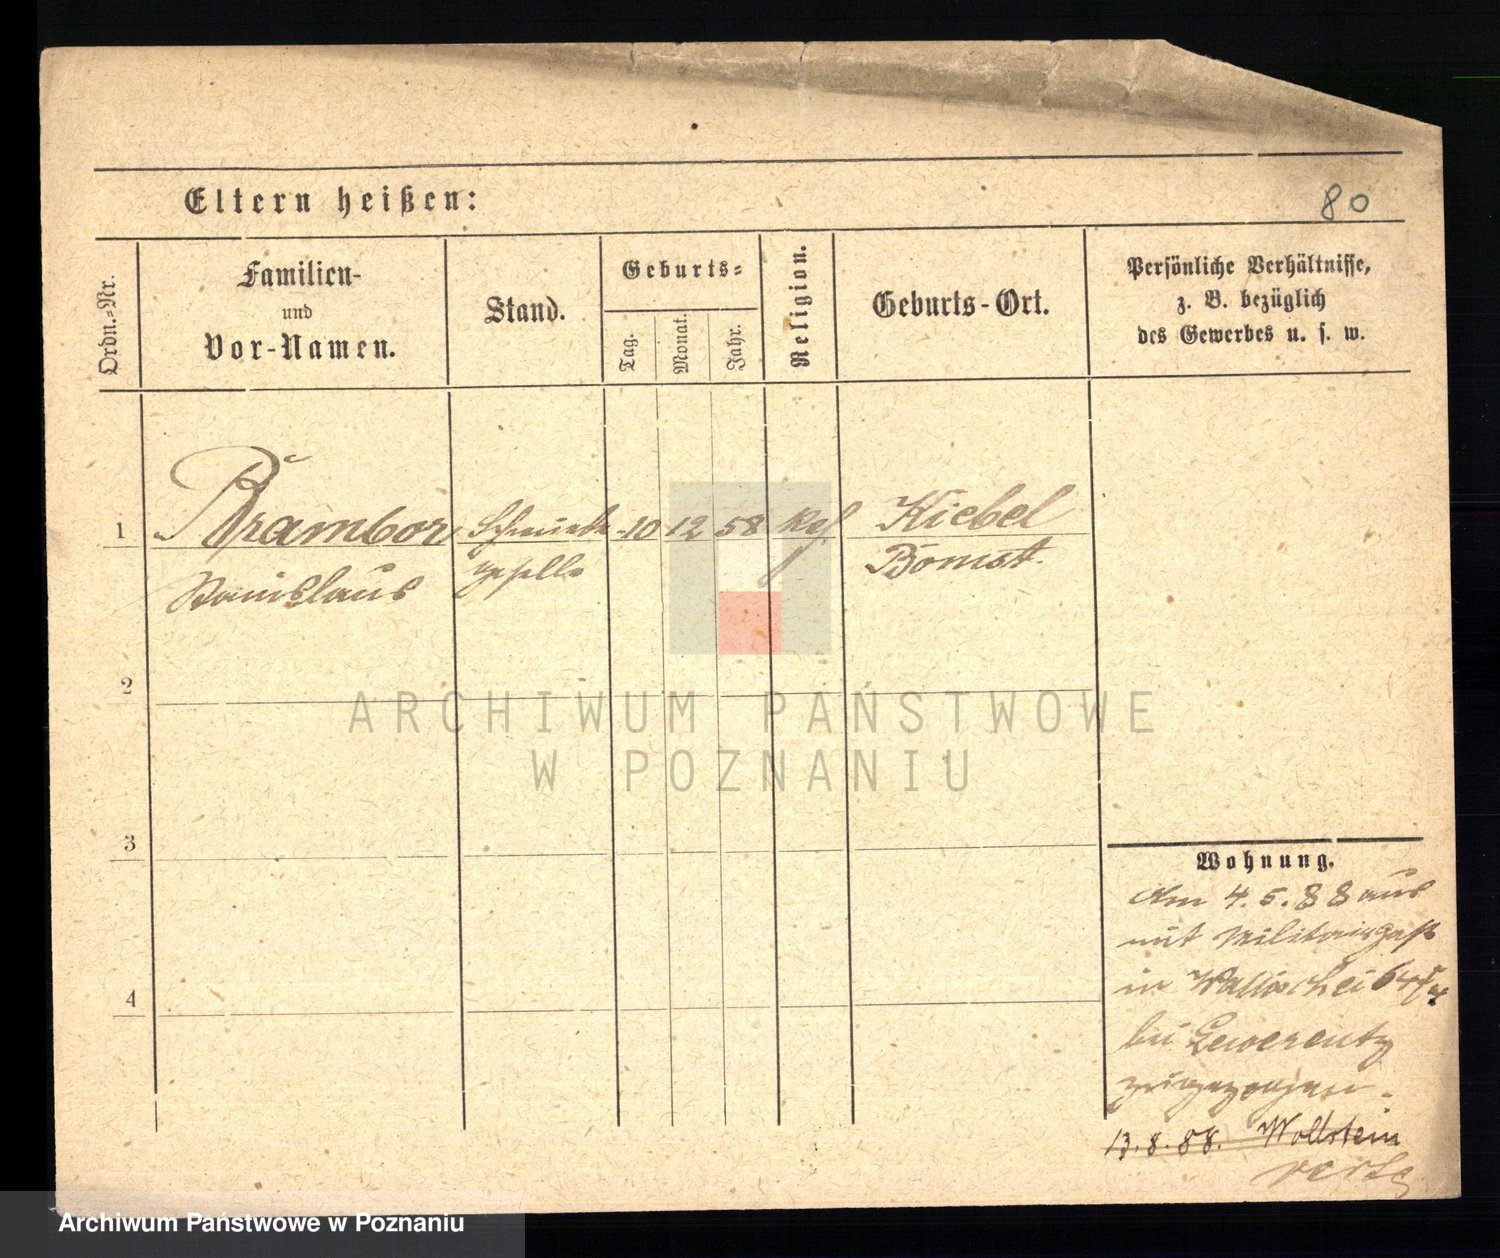 Eltern heißen:
80
Ordn.-Nr.
Familien-
und
Vor-Namen.
Stand.
Geburts-
Tag.
Monat.
Jahr.
Religion.
Geburts-Ort.
Persönliche Verhältnisse,
z. B. bezüglich
des Gewerbes u. s. w.
1 Brambor 10 12 58 Kiebel
Stanislaus geselle Bomst.
2
3
4
Wohnung.
Am 4. 5. 88 aus
mit Militairpaß
in Wallischei 64/4
bei Lewerentz
zugezogen.
13. 8. 88. Wollstein
ARCHIWUM PAŃSTWOWE
W POZNANIU
Archiwum Państwowe w Poznaniu